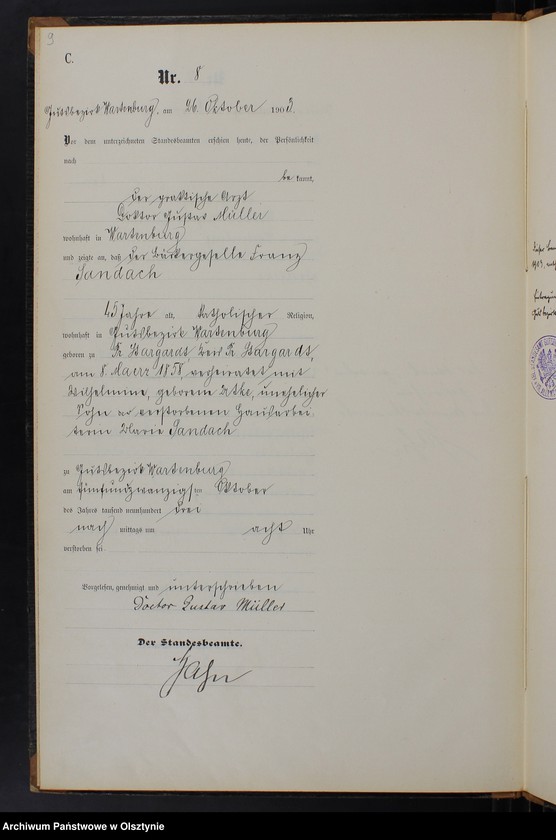 9
C.
Nr. 8
Gutsbezirk Wartenburg, am 26. Oktober 1903.
Vor dem unterzeichneten Standesbeamten erschien heute, der Persönlichkeit
nach
be kannt,
der praktische Arzt
Doktor Gustav Müller
wohnhaft in Wartenburg
und zeigte an, daß der Bäckergeselle Franz
Sandach
45 Jahre alt, katholischer Religion,
wohnhaft in Gutsbezirk Wartenburg
geboren zu Kr.
am 8. Maerz 1858, verheiratet mit
Wilhelmine, geborene unehelicher
Sohn der verstorbenen Hausarbei
terin Marie Sandach
zu Gutsbezirk Wartenburg
am fünfundzwanzigsten Oktober
des Jahres tausend neunhundert drei
nach mittags um acht Uhr
verstorben sei
Vorgelesen, genehmigt und unterschrieben
Doctor Gustav Müller
Der Standesbeamte.
Jahn
Archiwum Państwowe w Olsztynie